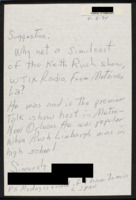 Suggestion.
Why not a simulcast
of the Keith Rush show,
WTIX Radio From Metairie
La?
He was and is the premier
Talk show host in Metro-
New Orleans. He was popular
when Rush Limbaugh was in
high school.
Sincerely